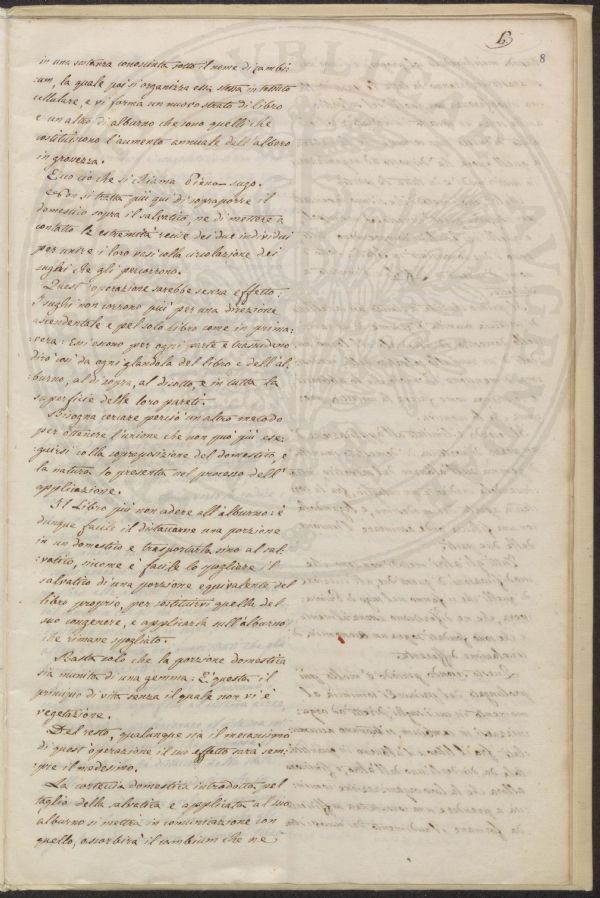 6
8
in una sostanza conosciuta sotto il nome di cambi:
:um, la quale poi si organizza essa stessa in tessuto
cellulare, e vi forma un nuovo strato di libro
e un altro di alburno che sono quelli che
costituiscono l'aumento annuale dell'albero
in grossezza.
Ecco ciò che si chiama Pieno-sugo.
Non si tratta più qui di sovrapporre il
domestico sopra il salvatico, nè di mettere a
contatto le estremità recise dei due individui
per unire i loro vasi colla circolazione dei
sughi che gli percorrono.
Quest'operazione sarebbe senza effetto:
I sughi non corrono più per una direzione
ascendentale e pel solo libro come in prima:
:vera: Essi escono per ogni parte e trasudano
dirò così da ogni glandola del libro e dell'al:
:burno, al di sopra, al disotto, e in tutta la
superficie delle loro pareti.
Bisogna cercare perciò un altro metodo
per ottenere l'unione che non può più ese:
:guirsi colla soprapposizione del domestico, e
la natura lo presenta nel processo dell'
applicazione.
Il Libro più non adere all'alburno: è
dunque facile il distaccarne una porzione
in un domestico e trasportarla sino al sal:
:vatico, siccome è facile lo spogliare il
salvatico di una porzione equivalente del
libro proprio, per sostituirvi quella del
suo congenere, e applicarla sull'alburno
che rimane spogliato.
Basta solo che la porzione domestica
sia munita di una gemma: È questa il
principio di vita senza il quale non vi è
vegetazione.
Del resto, qualunque sia il meccanismo
di quest'operazione il suo effetto sarà sem:
:pre il medesimo.
La corteccia domestica introdotta pel
taglio della salvatica e applicata al suo
alburno si metterà in comunicazione con
quello, assorbirà il cambium che ne